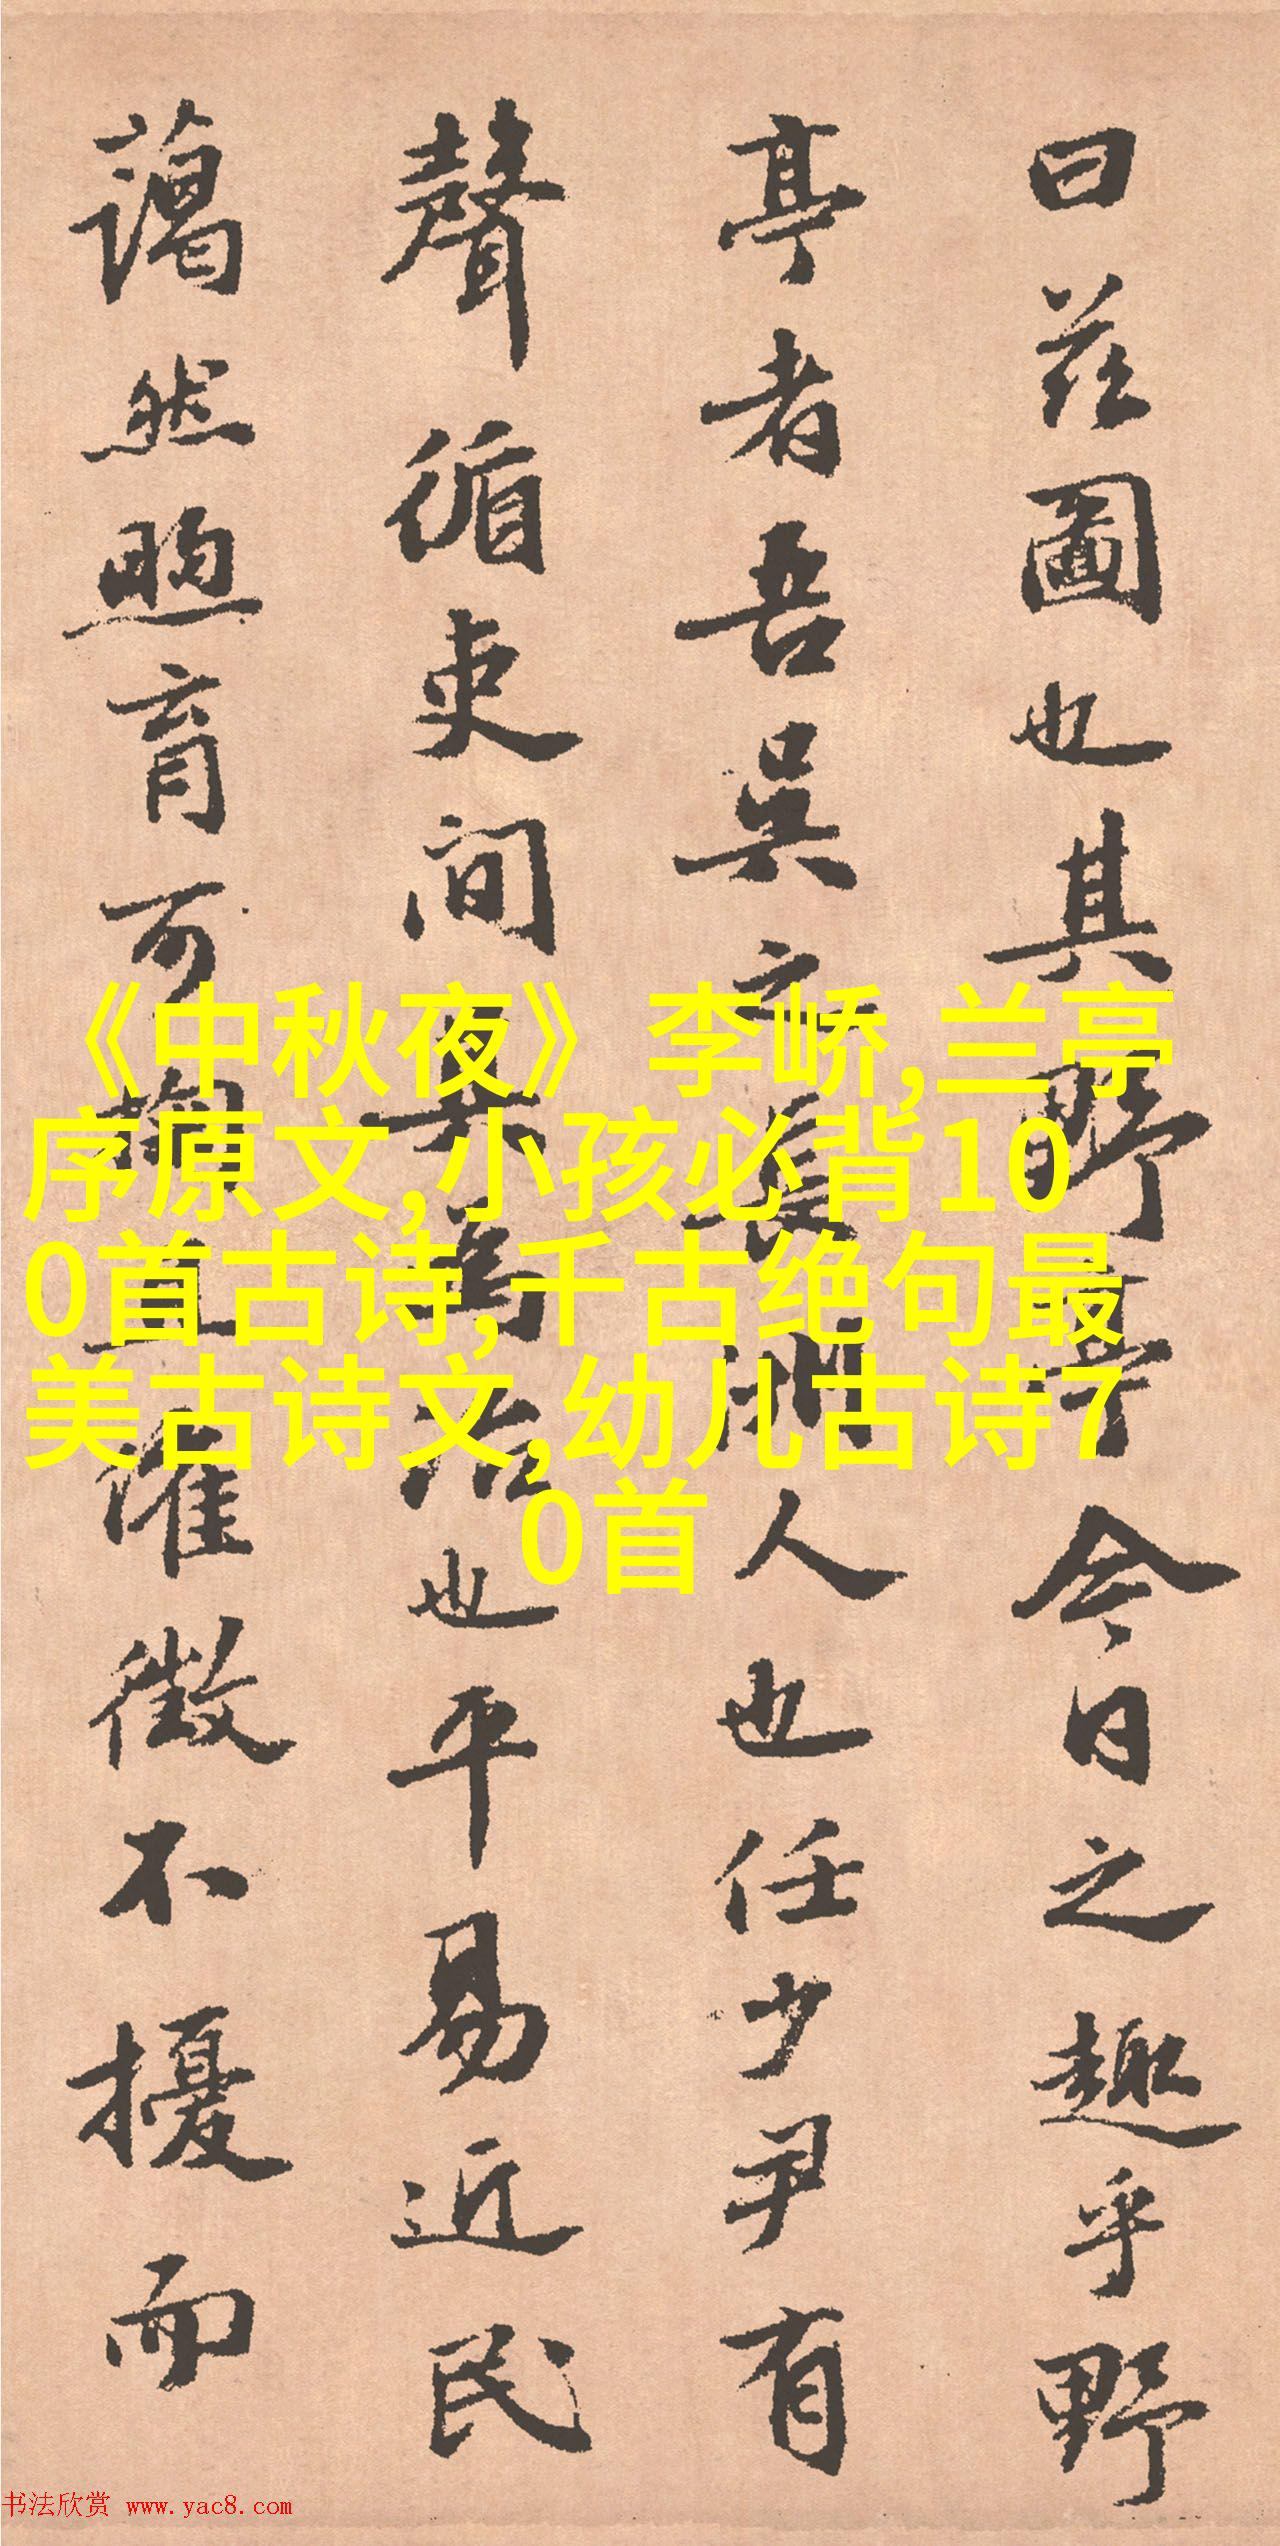 曰茲圖也其野亭今日之趣乎野
亭者吾吳之長洲人也任少尹有
聲循吏间其為治也平易近民
藹然煦育可掬且催徵不擾而
《中秋夜》李峤,兰亭
序原文,小孩必背10
0首古诗,千古绝句最
美古诗文,幼儿古诗7
0首
书法欣赏 www.yac8.com